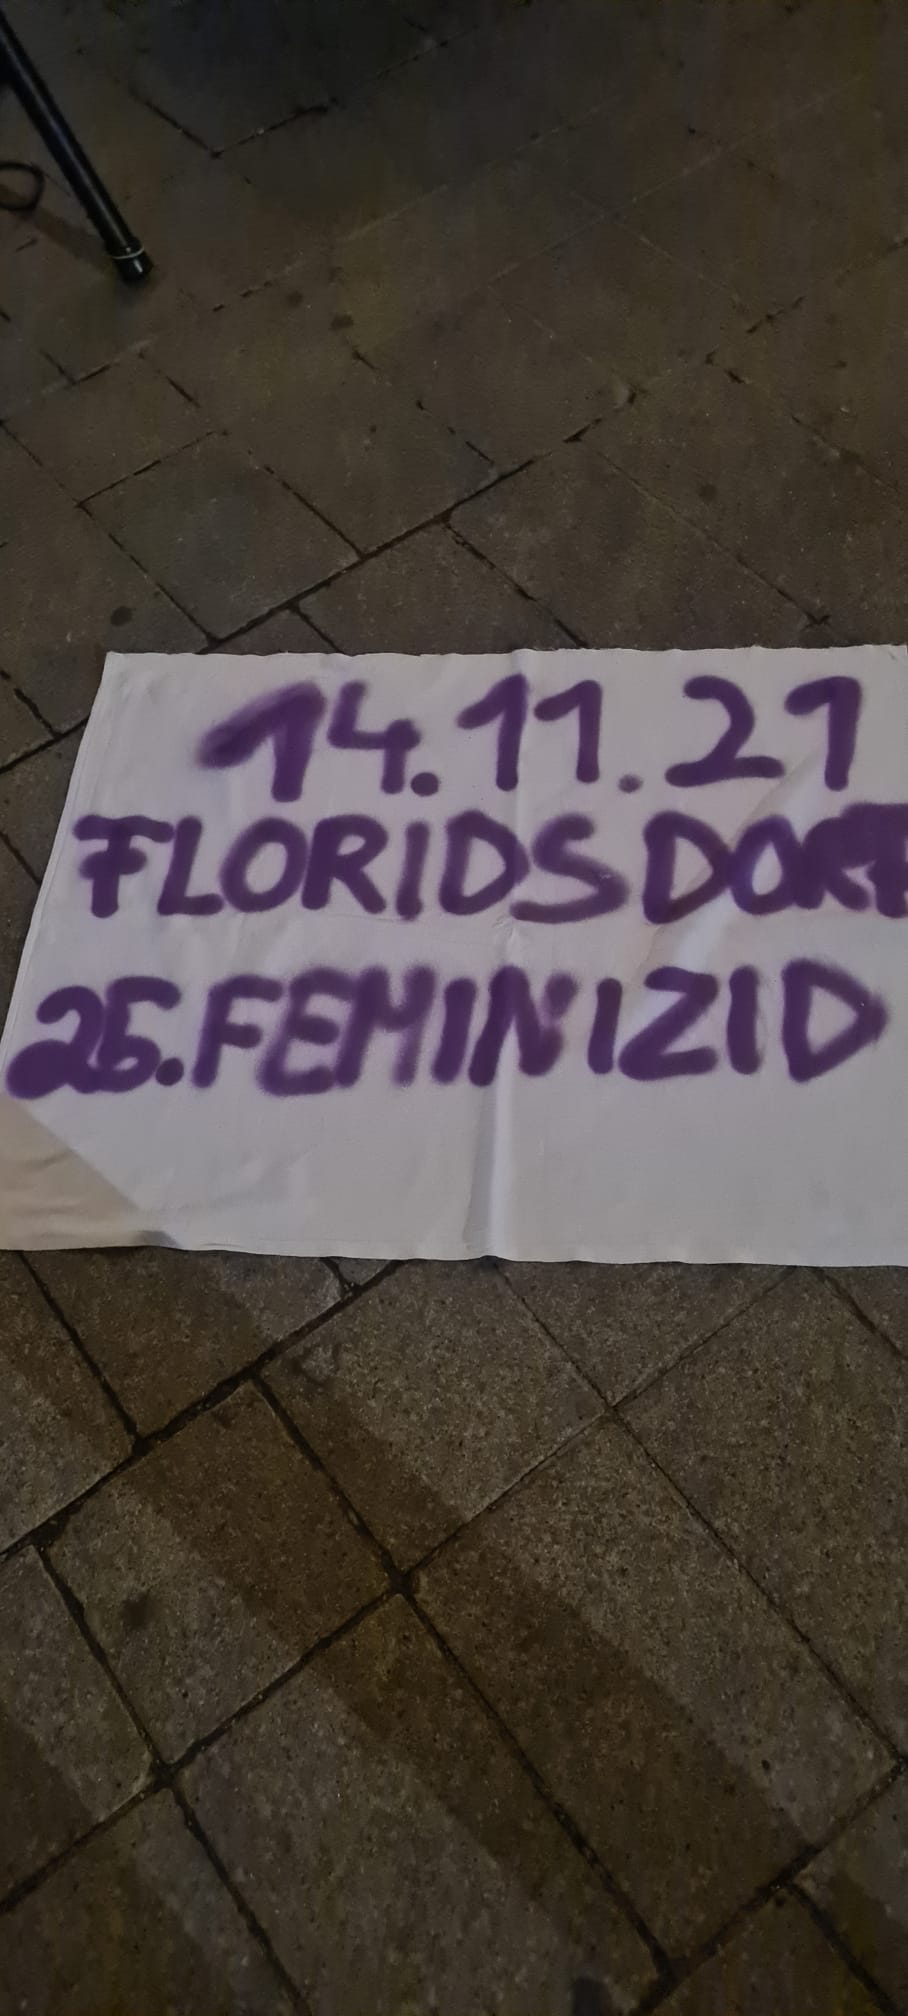 14.11.21
FLORIDSDORF
25.FEMINIZID